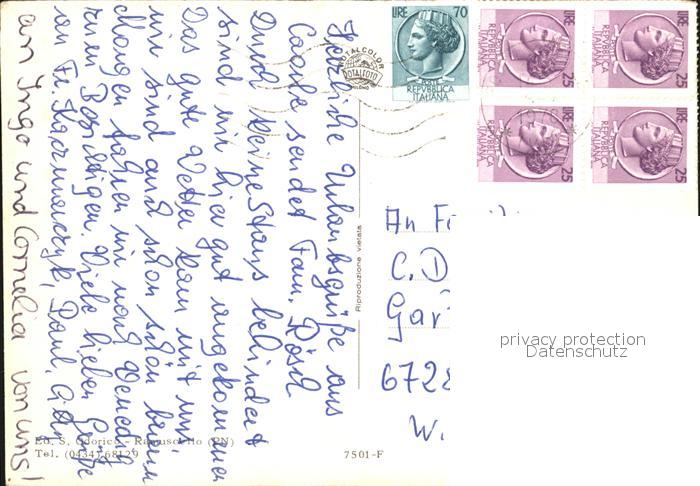 Herzliche Urlaubsgrüße aus
Caorle sendet Fam.
Durch keine Staus behindert
sind wir hier gut angekommen
Das gute Wetter kam mit wir
wir sind auch schon schön braun
Morgen fahren wir nach Venedig
zum Besichtigen. Viele lieben Grüße
an Fr. Kaczmarczyk, Paul,
an Ingo und Cornelia von uns!
LIRE 70
POSTE
REPVBBLICA
ITALIANA
LIRE 25
REPVBBLICA
ITALIANA
LIRE 25
REPVBBLICA
ITALIANA
LIRE 25
REPVBBLICA
ITALIANA
LIRE 25
REPVBBLICA
ITALIANA
ROTALCOLOR
ROTALFOTO
MILANO
Riproduzione vietata
An F
C. D
Gar
672
W.
privacy protection
Datenschutz
Ed. S. Odorico - Ramuscello (PN)
Tel. (0434) 68129
7501-F